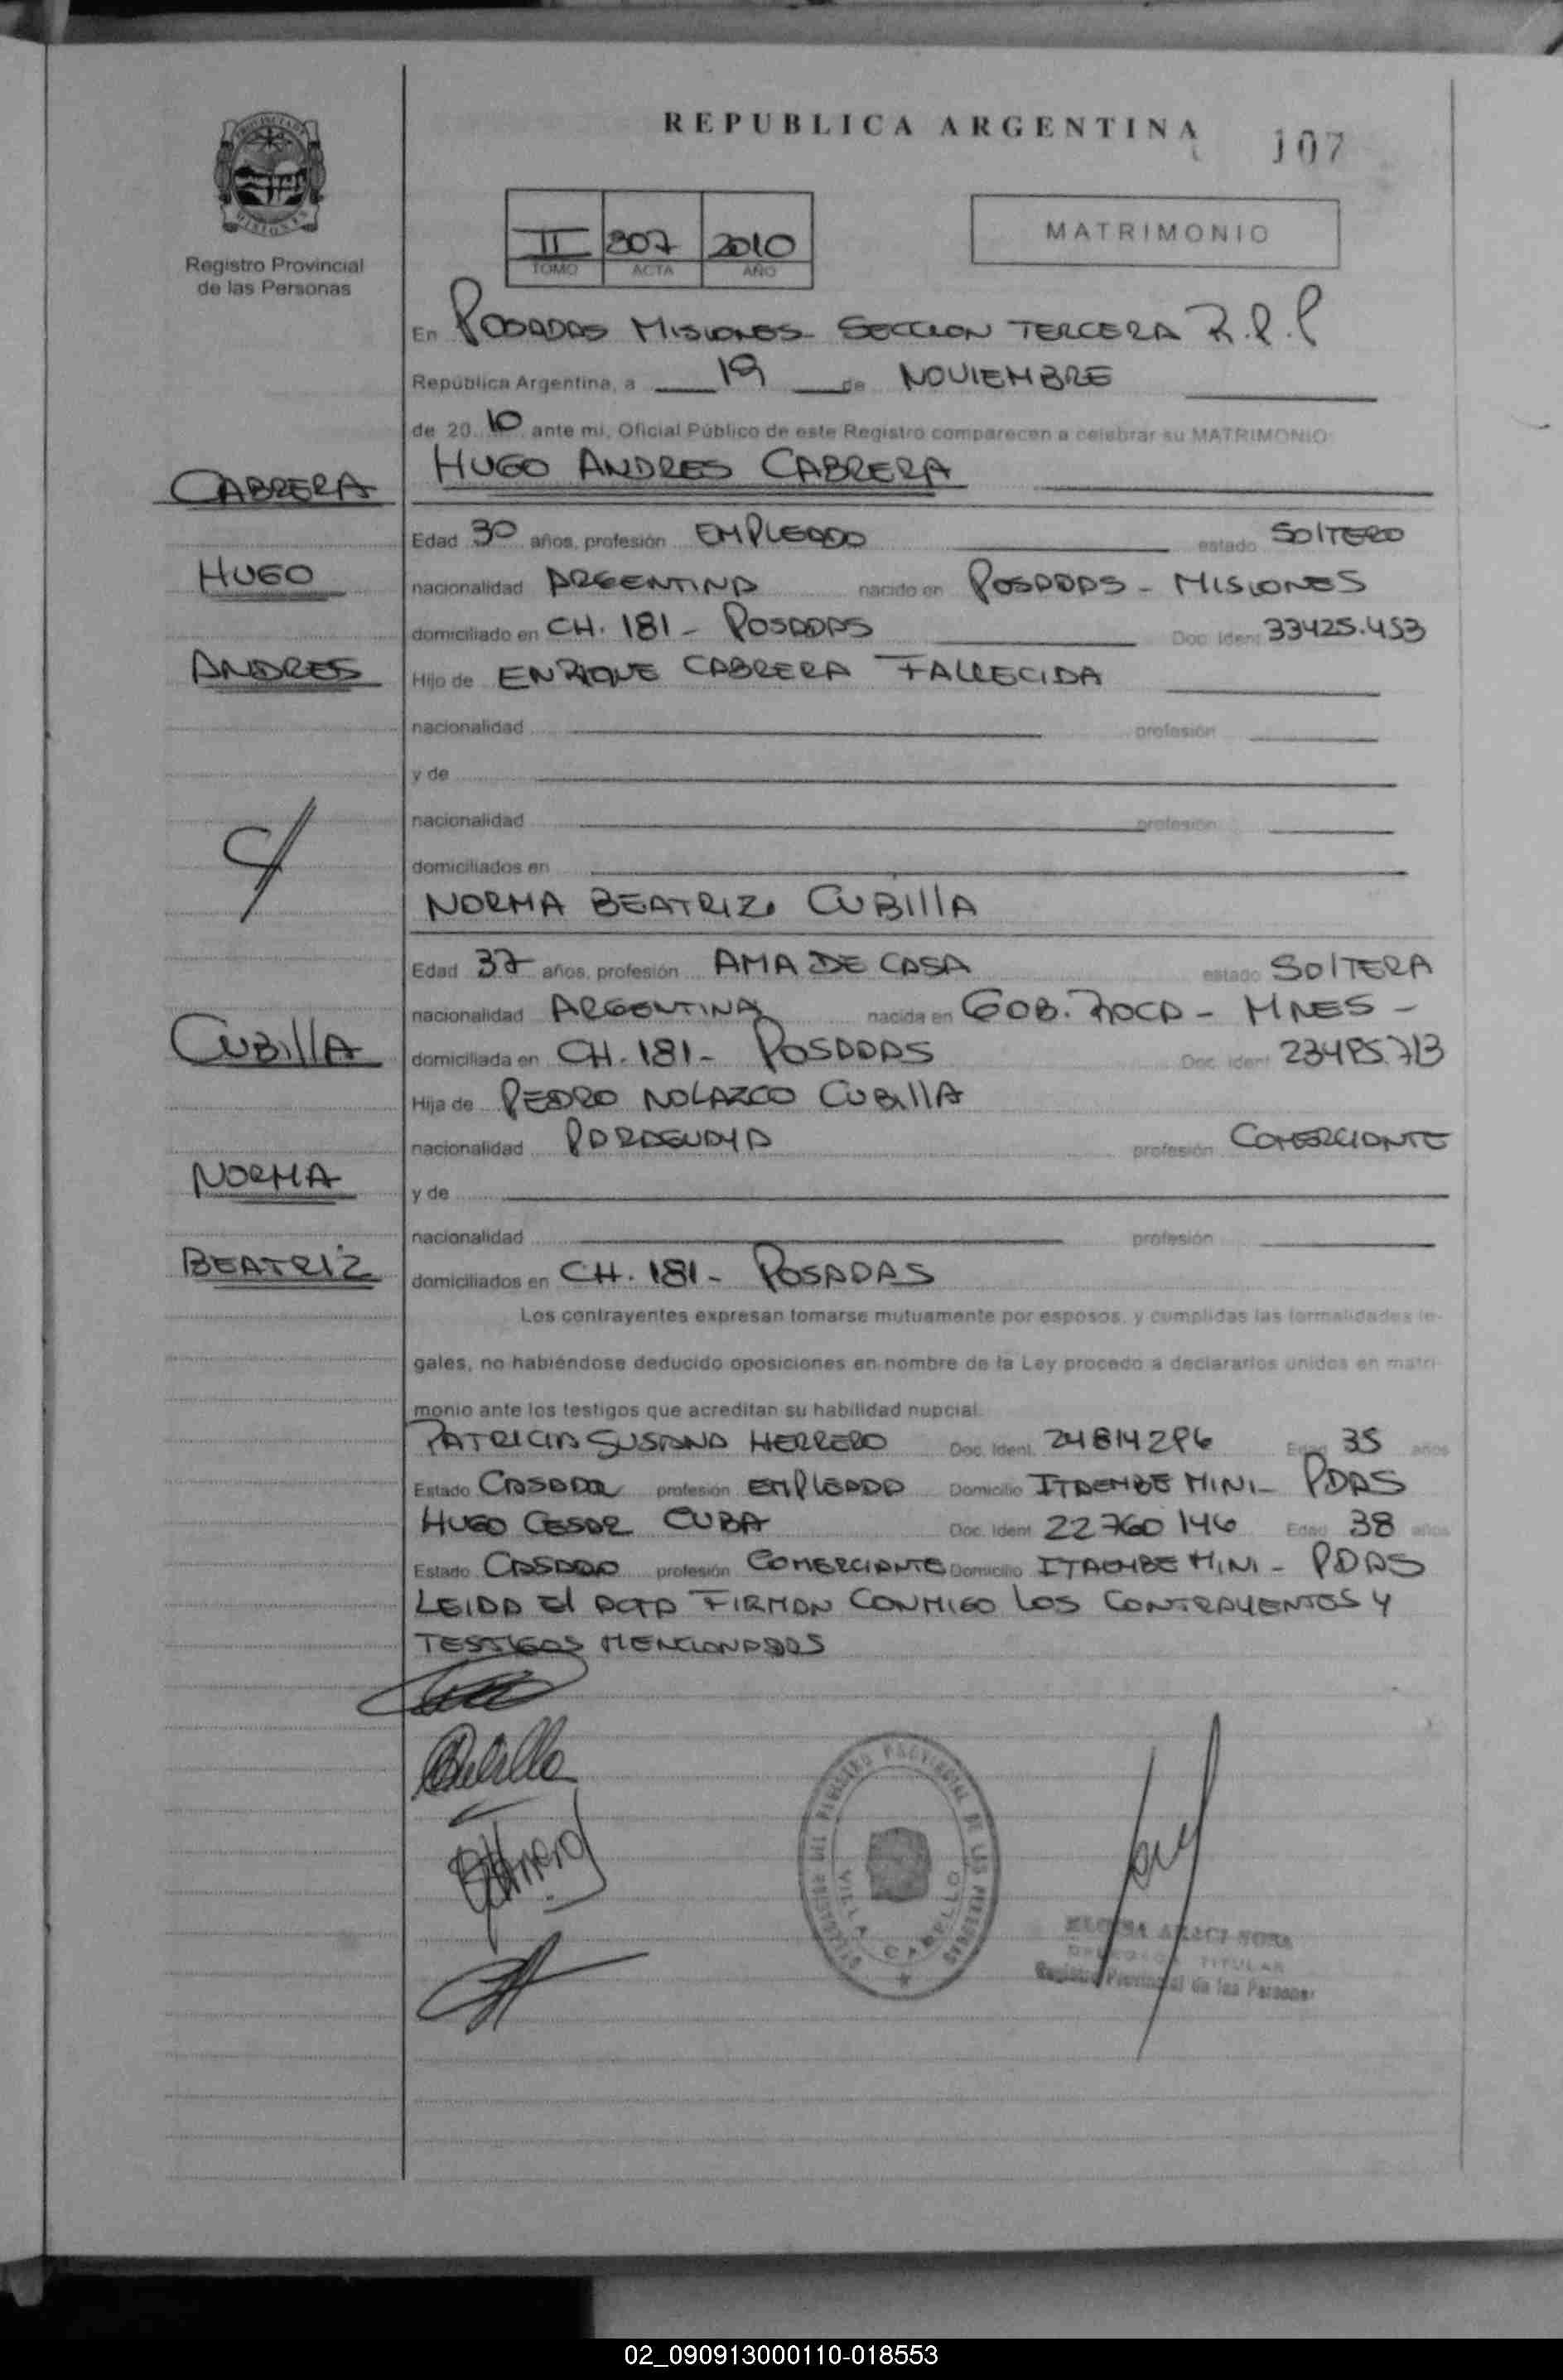 REPUBLICA ARGENTINA
107
PROVINCIA DE
MISIONES
Registro Provincial
de las Personas
II 307 2010
TOMO ACTA AÑO
MATRIMONIO
En POSADAS MISIONES SECCION TERCERA R.P.P
República Argentina, a 19 de NOVIEMBRE
de 20 10 ante mi, Oficial Público de este Registro comparecen a celebrar su MATRIMONIO:
HUGO ANDRES CABRERA
CABRERA
Edad 30 años, profesión EMPLEADO estado SOlTERO
HUGO
nacionalidad ARGENTINA nacido en POSADAS - MISIONES
domiciliado en CH. 181 - POSADAS Doc. Ident 33425.453
ANDRES
Hijo de ENRIQUE CABRERA FALLECIDA
nacionalidad profesión
y de
nacionalidad profesión
C/
domiciliados en
NORMA BEATRIZ CUBIllA
Edad 37 años, profesión AMA DE CASA estado SOlTERA
nacionalidad ARGENTINA nacida en GOB. ROCA - MNES -
CUBIllA
domiciliada en CH. 181 - POSADAS Doc. Ident
Hija de PEDRO NOLAZCO CUBIllA
nacionalidad PARAGUAYA profesión COMERCIANTE
NORMA
y de
nacionalidad profesión
BEATRIZ
domiciliados en CH. 181 - POSADAS
Los contrayentes expresan tomarse mutuamente por esposos, y cumplidas las formalidades le-
gales, no habiéndose deducido oposiciones en nombre de la Ley procedo a declararlos unidos en matri-
monio ante los testigos que acreditan su habilidad nupcial.
PATRICIA SUSANA HERRERO Doc. Ident. Edad 35 años
Estado CASADA profesión EMPLEADA Domicilio ITAEMBE MINI - PDAS
HUGO CESAR CUBA Doc. Ident 22760146 Edad 38 años
Estado CASADO profesión COMERCIANTE Domicilio ITAEMBE MINI - PDAS
LEIDA El ACTA FIRMAN CONMIGO LOS CONTRAYENTES Y
TESTIGOS MENCIONADOS
Cubilla
REGISTRO PROVINCIAL DE LAS PERSONAS
VILLA CABELLO
SOSA
TITULAR
Registro Provincial de las Personas
02_090913000110-018553